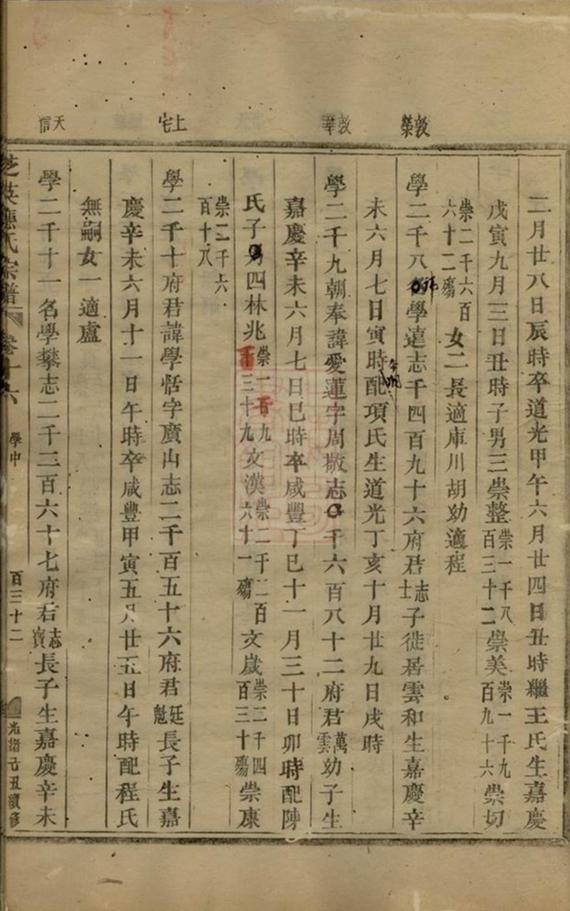 敦榮
敦華
上宅
天信
二月廿八日辰時卒道光甲午六月廿四日丑時繼王氏生嘉慶
戊寅九月三日丑時子男三崇整崇一千八百三十二崇美崇一千九百九十六崇切
崇二千六百六十二殤女二長適庫川胡幼適程
學二千八 學遠志千四百九十六府君志士子徙居雲和生嘉慶辛
未六月七日寅時配項氏生道光丁亥十月廿九日戌時
學二千九朝奉諱愛蓮字周敬志 千六百八十二府君萬雲幼子生
嘉慶辛未六月七日巳時卒咸豐丁巳十一月三十日卯時配陳
氏子男四林兆崇 三十九文漢崇二千二百六十一殤文歲崇二千四百三十殤崇康
崇二千六百十八
學二千十府君諱學恬字廣山志二千百五十六府君廷魁長子生嘉
慶辛未六月十一日午時卒咸豐甲寅五月廿五日午時配程氏
無嗣女一適盧
學二千十一名學攀志二千三百六十七府君志寶長子生嘉慶辛未
芝英應氏宗譜 卷十六 學中 百三十二 光緒己丑續修